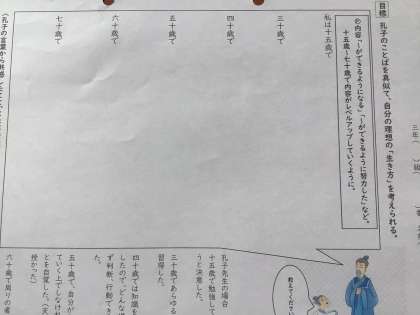 三年(　　)組(　　)番
目標 孔子のことばを真似て、自分の理想の「生き方」を考えられる。
◎内容…「〜ができるようになる」「〜ができるように努力した」など、
十五歳〜七十歳で内容がレベルアップしていくように。
私は十五歳で
三十歳で
四十歳で
五十歳で
六十歳で
七十歳で
教えてください
孔子先生の場合
十五歳で勉強して
うと決意した。
三十歳であらゆる
習得した。
四十歳では知識を
したので、どんな
ず判断、行動でき
た。
五十歳で、自分が
ていく上でしなけ
とを自覚した。(天
授かった)
六十歳で周りの者